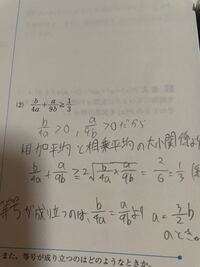 (2) b/4a + a/9b ≧ 1/3
b/4a > 0, a/9b > 0 だから
相加平均と相乗平均の大小関係より
b/4a + a/9b ≧ 2√(b/4a × a/9b) = 2/6 = 1/3
等号が成り立つのは、b/4a = a/9b より a = 3/2 b
のとき
また，等号が成り立つのはどのようなときか。